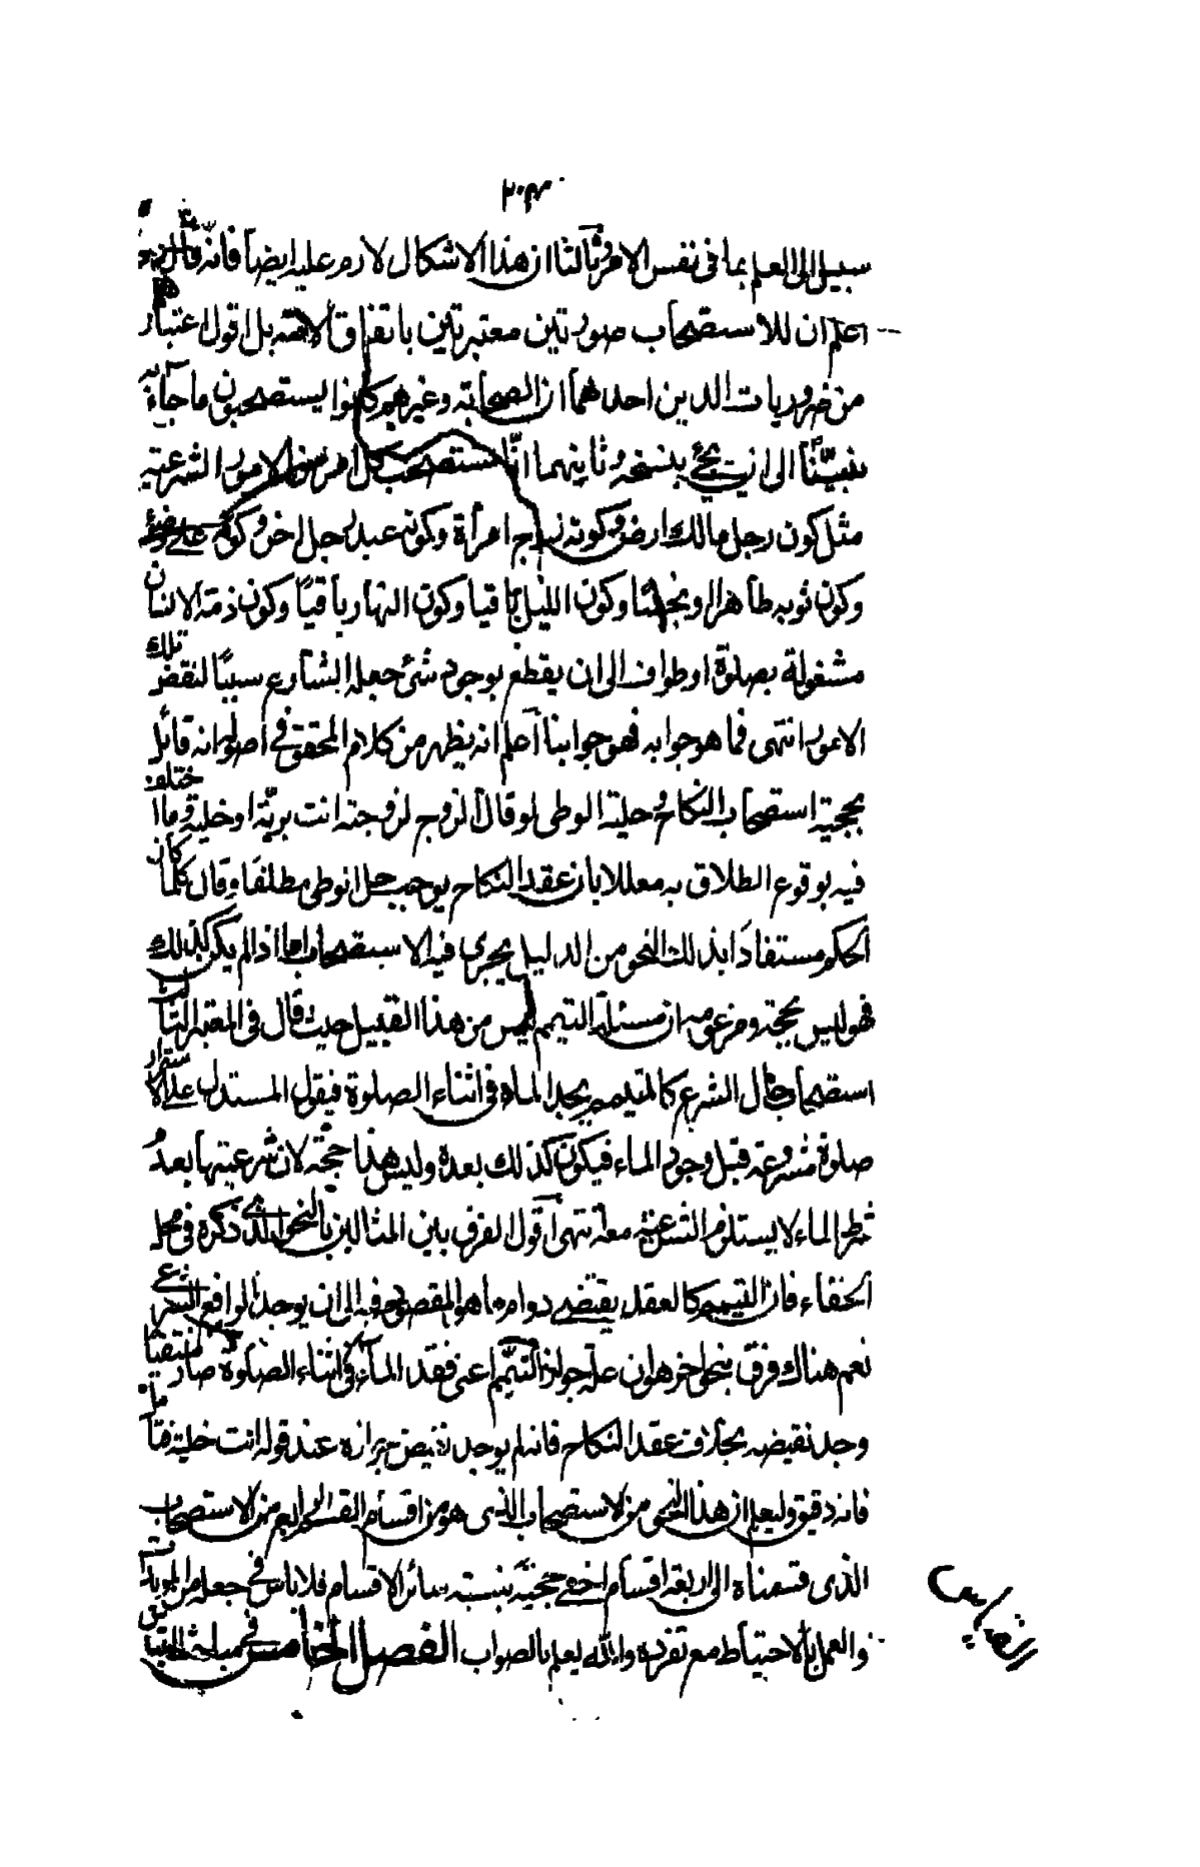 ٢٠٣
سبيل الى العلم بما فى نفس الامر وثالثا ان هذا الاشكال لازم عليه ايضا فانه قال
اعلم ان للاستصحاب صورتين معتبرتين باتفاق الامة بل اقول اعتبار
من ضروريات الدين احداهما ان الصحابة وغيرهم كانوا يستصحبون ما جاء به
نبينا الى ان يجئ بنسخه وثانيهما انا نستصحب كل امر من الامور الشرعية
مثل كون رجل مالك ارض وكونه زوج امرأة وكونه عبد رجل اخر وكونه على وضوء
وكون ثوبه طاهرا او نجسا وكون الليل باقيا وكون النهار باقيا وكون ذمة الانسان
مشغولة بصلوة او طواف الى ان يقطع بوجود شئ جعله الشارع سببا لنقض تلك
الامور انتهى فما هو جوابه فهو جوابنا اعلم انه يظهر من كلام المحقق في اصوله انه قائل
بحجية استصحاب النكاح وحلية الوطى لو قال الزوج لزوجته انت برية او خلية وما اختلف
فيه بوقوع الطلاق به معللا بان عقد النكاح يوجب حل الوطى مطلقا وقال كلما كان
الحكم مستفادا بذلك النحو من الدليل يجرى فيه الاستصحاب اما اذا لم يكن كذلك
فهو ليس بحجة وزعم ان مسئلة التيمم ليس من هذا القبيل حيث قال فى المعتبر الثالث
استصحاب حال الشرع كالمتيمم يجد الماء فى اثناء الصلوة فيقول المستدل على الاستمرار
صلوة مشروعة قبل وجود الماء فيكون كذلك بعده وليس هذا حجة لان شرعيتها بعدم
الماء لا يستلزم الشرعية معه انتهى اقول الفرق بين المثالين بالنحو الذى ذكره فى محل
الخفاء فان التيمم كالعقد يقتضى دوام ما هو المقصود فيه الى ان يوجد الرافع الشرعى
نعم هناك فرق بنحو اخر هو ان علة جواز التيمم اعنى فقد الماء فى اثناء الصلوة صار منتقيا
وجد نقيضه بخلاف عقد النكاح فانه لم يوجد نقيض عند قوله انت خلية فتامل
فانه دقيق وليعلم ان هذا النحو من الاستصحاب الذى هو من اقسام القسم الرابع من الاستصحاب
الذى قسمناه الى اربعة اقسام اخفى حجية بنسبة سائر الاقسام فلا باس فى جعله من المويدات
والعمل بالاحتياط مع تفرده والله يعلم بالصواب الفصل الخامس فى مباحث القياس
القياس